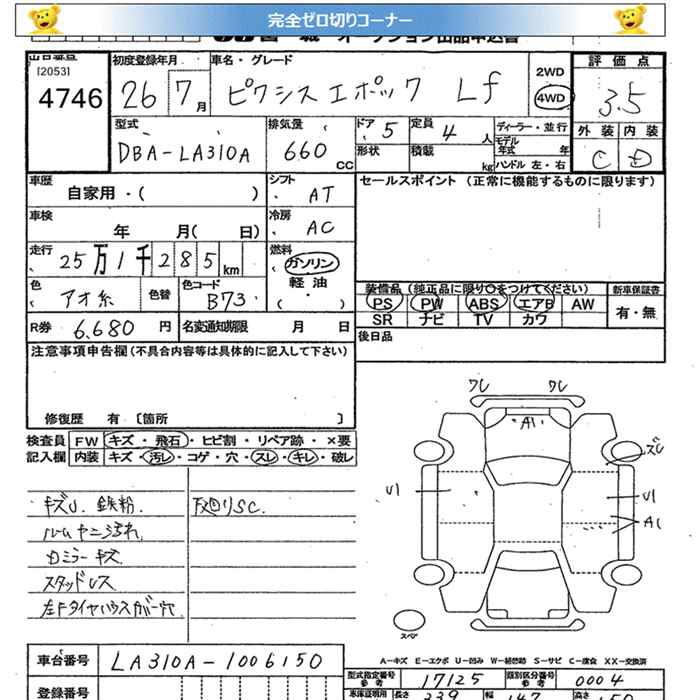 完全ゼロ切りコーナー
出品番号 初度登録年月 車名・グレード 2WD 評価点
[2053]
4746 26 7月 ピクシスエポック Lf 4WD 3.5
型式 排気量 ドア 5 定員 4人 ディーラー・並行 外装 内装
モデル年式 年
DBA-LA310A 660cc 形状 積載 kg ハンドル 左・右 C D
車歴 シフト セールスポイント (正常に機能するものに限ります)
自家用・( ) AT
車検 冷房
年 月( 日) AC
走行 燃料
25万1千285km ガソリン
軽油
色 色替 色コード
アオ系 B73
装備品 (純正品に限り○をつけてください) 新車保証書
PS PW ABS エアB AW 有・無
SR ナビ TV カワ
R券 6,680円 名変通知期限 月 日
後日品
注意事項申告欄(不具合内容等は具体的に記入して下さい)
修復歴 有 〔箇所 〕
検査員 FW キズ・飛石・ヒビ割・リペア跡・×要
記入欄 内装 キズ・汚レ・コゲ・穴・スレ・キレ・破レ
ワレ ワレ
A1
U1 U1
A1
キズU. 鉄粉. 下廻りSC.
ルームヤニ汚れ
Dミラーキズ
スタッドレス
左Fタイヤハウスカバー穴
スペア
A-キズ E-エクボ U-凹み W-補修跡 S-サビ C-腐食 XX-交換済
車台番号 LA310A-1006150
型式指定番号 参考 17125 類別区分番号 参考 0004
登録番号 車庫証明用 長さ 339 幅 147 高さ 150